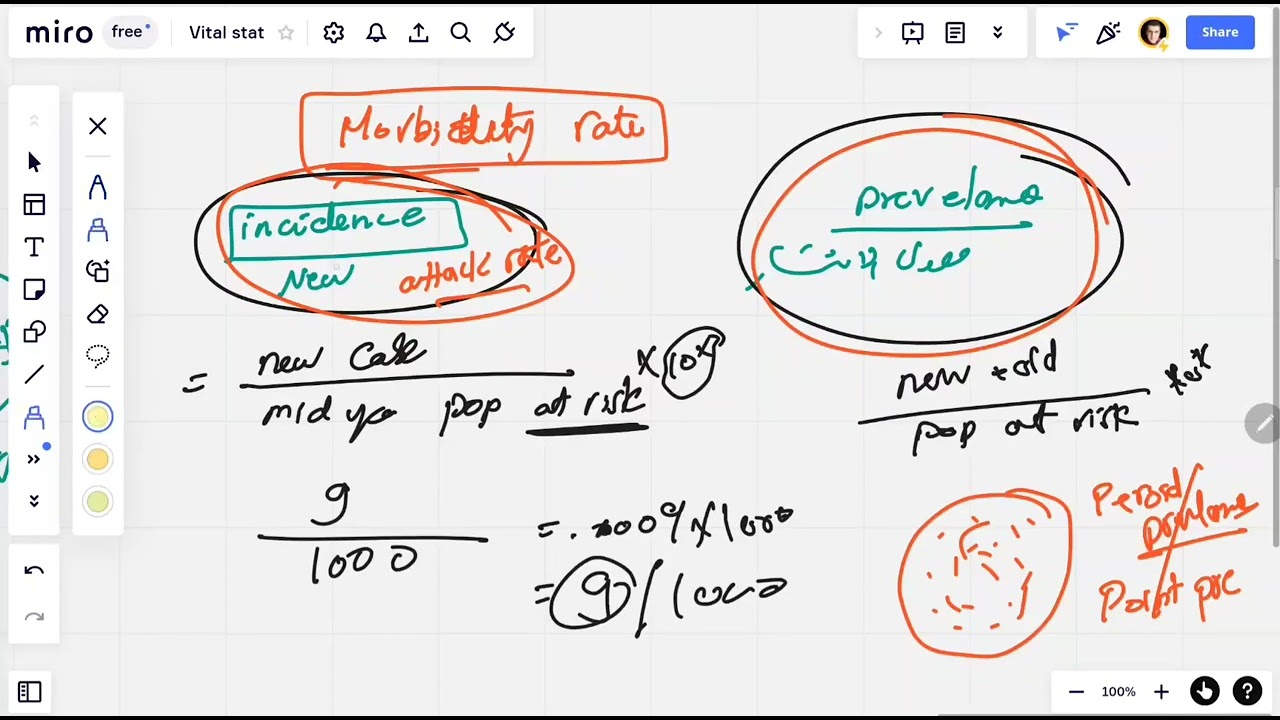 miro free Vital stat Share
Morbidity rate
incidence
New attack rate
prevelance
= new case × 10ˣ
mid yea pop at risk
new + old × 10ˣ
pop at risk
9
1000
= .009 × 1000
= 9 / 1000
Period /
prevelance
Point pre
100%